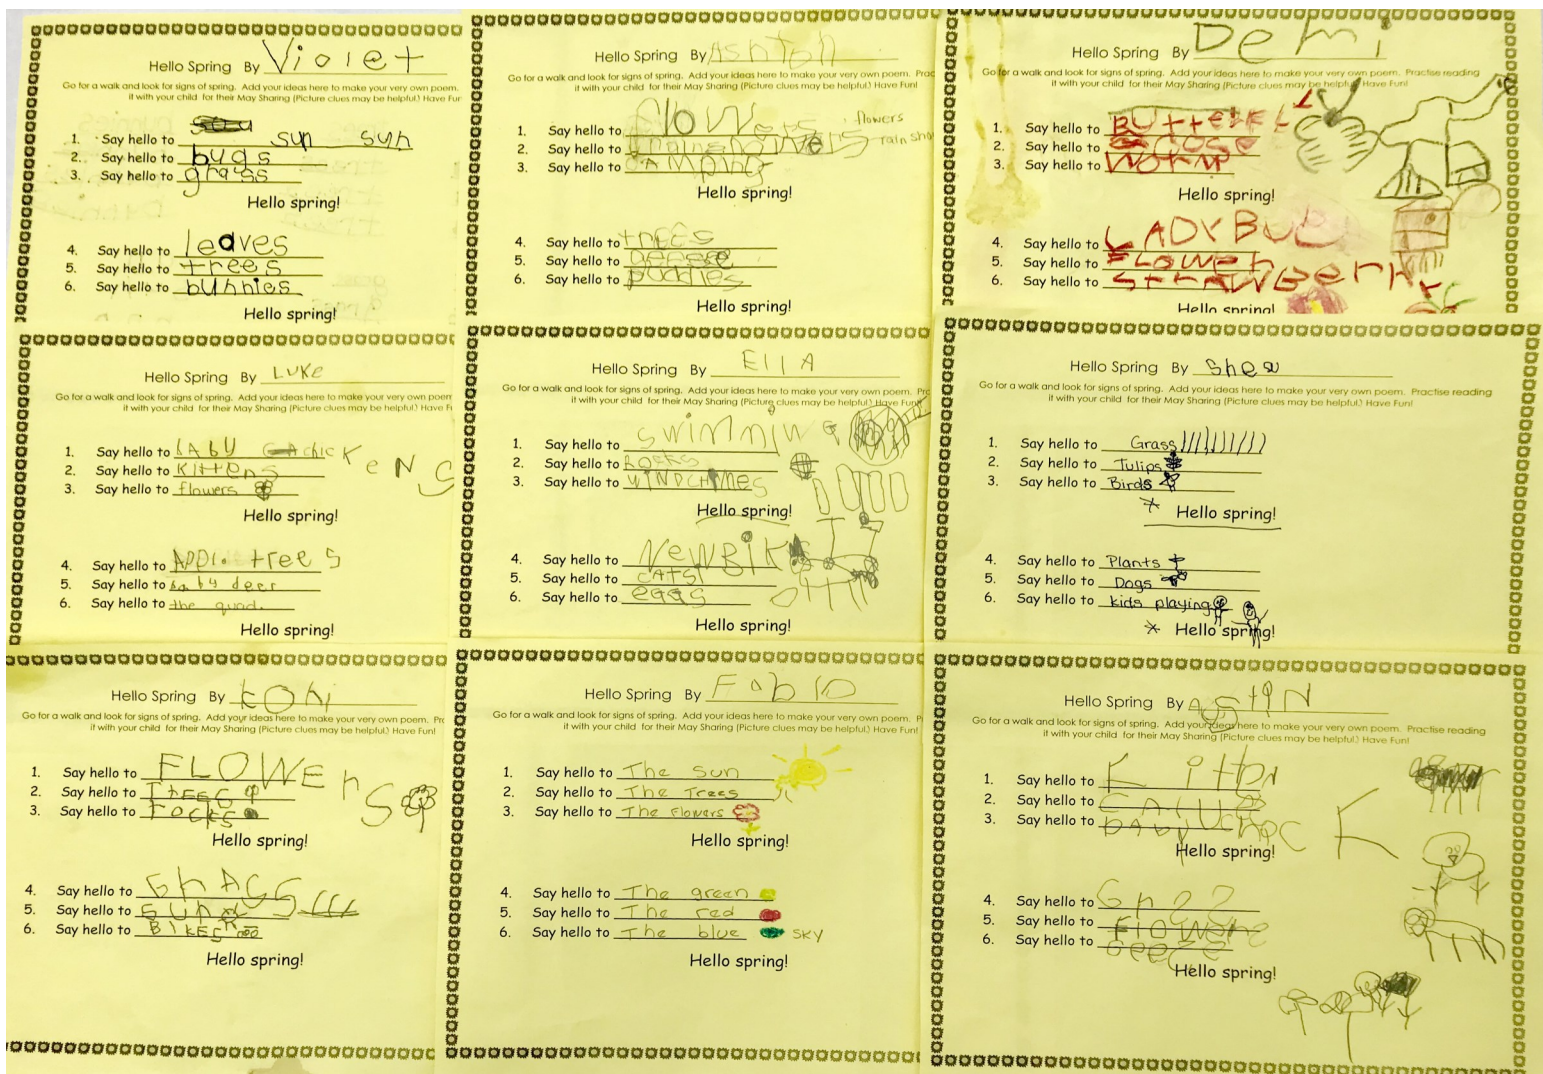 Hello Spring By Violet
Go for a walk and look for signs of spring. Add your ideas here to make your very own poem.
it with your child for their May Sharing (Picture clues may be helpful.) Have Fun
1. Say hello to sun sun
2. Say hello to bugs
3. Say hello to grass
Hello spring!
4. Say hello to leaves
5. Say hello to trees
6. Say hello to bunnies
Hello spring!
Hello Spring By Ashton
Go for a walk and look for signs of spring. Add your ideas here to make your very own poem.
it with your child for their May Sharing (Picture clues may be helpful.) Have Fun!
1. Say hello to flowers flowers
2. Say hello to rainshowers rain
3. Say hello to camping
Hello spring!
4. Say hello to trees
5. Say hello to
6. Say hello to puddles
Hello spring!
Hello Spring By Demi
Go for a walk and look for signs of spring. Add your ideas here to make your very own poem. Practise reading
it with your child for their May Sharing (Picture clues may be helpful.) Have Fun!
1. Say hello to BUtteRFLY
2. Say hello to GOOSE
3. Say hello to WOrM
Hello spring!
4. Say hello to LADYBUG
5. Say hello to FLOWer
6. Say hello to StrAWBerry
Hello spring!
Hello Spring By Luke
Go for a walk and look for signs of spring. Add your ideas here to make your very own poem
it with your child for their May Sharing (Picture clues may be helpful.) Have F
1. Say hello to bAby chicKeNS
2. Say hello to Kittens
3. Say hello to flowers
Hello spring!
4. Say hello to trees
5. Say hello to baby deer
6. Say hello to the quad.
Hello spring!
Hello Spring By EllA
Go for a walk and look for signs of spring. Add your ideas here to make your very own poem.
it with your child for their May Sharing (Picture clues may be helpful.) Have Fun!
1. Say hello to swimming
2. Say hello to Rocks
3. Say hello to WINDCHIMes
Hello spring!
4. Say hello to NewBiKe
5. Say hello to CATS
6. Say hello to eggs
Hello spring!
Hello Spring By Shea
Go for a walk and look for signs of spring. Add your ideas here to make your very own poem. Practise reading
it with your child for their May Sharing (Picture clues may be helpful.) Have Fun!
1. Say hello to Grass
2. Say hello to Tulips
3. Say hello to Birds
Hello spring!
4. Say hello to Plants
5. Say hello to Dogs
6. Say hello to kids playing
Hello spring!
Hello Spring By
Go for a walk and look for signs of spring. Add your ideas here to make your very own poem.
it with your child for their May Sharing (Picture clues may be helpful.) Have Fun!
1. Say hello to FLOWErS
2. Say hello to TrEES
3. Say hello to rocks
Hello spring!
4. Say hello to GrASS
5. Say hello to SUN
6. Say hello to BIKES
Hello spring!
Hello Spring By Fabio
Go for a walk and look for signs of spring. Add your ideas here to make your very own poem.
it with your child for their May Sharing (Picture clues may be helpful.) Have Fun!
1. Say hello to The Sun
2. Say hello to The Trees
3. Say hello to The Flowers
Hello spring!
4. Say hello to The green
5. Say hello to The red
6. Say hello to The blue sky
Hello spring!
Hello Spring By AustiN
Go for a walk and look for signs of spring. Add your ideas here to make your very own poem. Practise reading
it with your child for their May Sharing (Picture clues may be helpful.) Have Fun!
1. Say hello to
2. Say hello to
3. Say hello to
Hello spring!
4. Say hello to
5. Say hello to
6. Say hello to Geese
Hello spring!